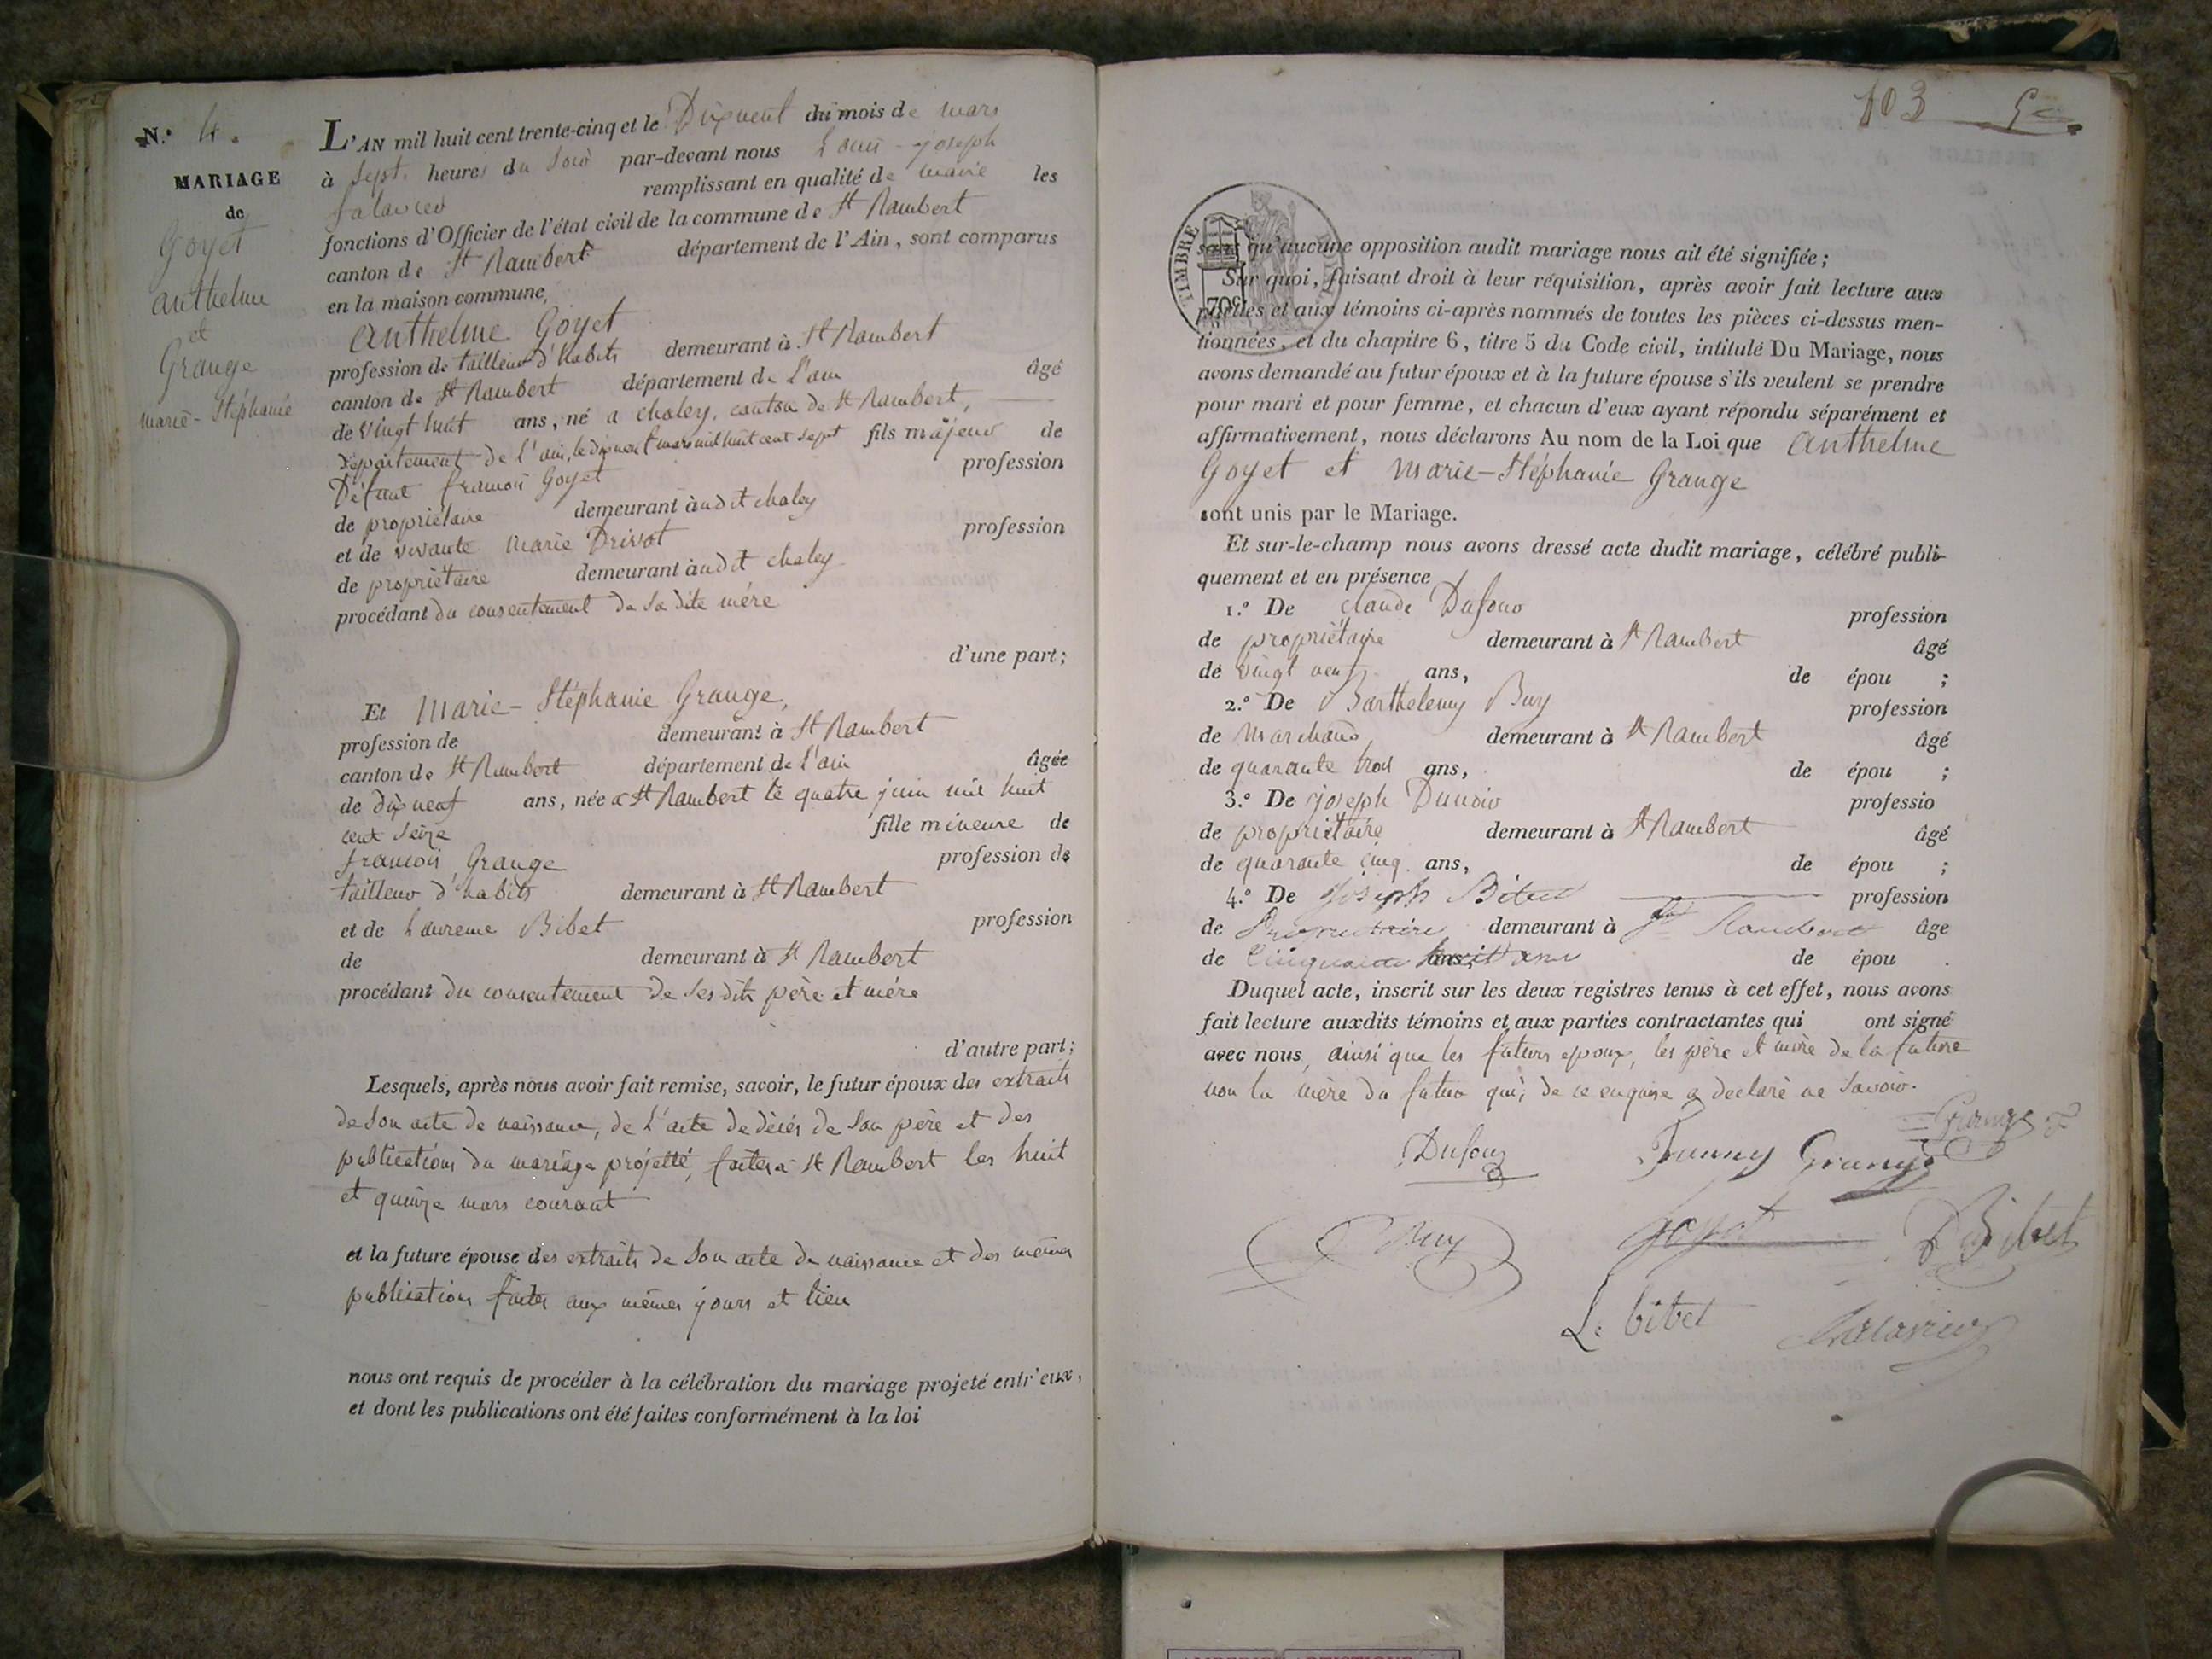 N.° 4.
MARIAGE
de
Goyet
anthelme
et
Grange
marie-Stéphanie
L'AN mil huit cent trente-cinq et le Dixneuf du mois de mars
à Sept heures du Soir par-devant nous Louis-joseph
falavier remplissant en qualité de maire les
fonctions d'Officier de l'état civil de la commune de St Rambert
canton de St Rambert département de l'Ain, sont comparus
en la maison commune,
anthelme Goyet
profession de tailleur d'habits demeurant à St Rambert
canton de St Rambert département de L'ain âgé
de vingt huit ans, né a chaley, canton de St Rambert,
Département de l'ain, le dixneuf mars mil huit cent sept fils majeur de
Défunt francois Goyet profession
de propriétaire demeurant audit chaley
et de vivante Marie Drivot profession
de propriétaire demeurant audit chaley
procédant du consentement de Sa dite mère
d'une part;
Et Marie-Stéphanie Grange,
profession de demeurant à St Rambert
canton de St Rambert département de l'ain âgée
de dixneuf ans, née a St Rambert le quatre juin mil huit
cent Seize fille mineure de
francois Grange profession de
tailleur d'habits demeurant à St Rambert
et de Laurence Bibet profession
de demeurant à St Rambert
procédant du consentement de Ses dits père et mère
d'autre part;
Lesquels, après nous avoir fait remise, savoir, le futur époux des extraits
de Son acte de naissance, de L'acte de décés de Son père et des
publications du mariage projetté, faites a St Rambert les huit
et quinze mars courant
et la future épouse des extraits de Son acte de naissance et des mêmes
publications faites aux mêmes jours et lieu
nous ont requis de procéder à la célébration du mariage projeté entr'eux,
et dont les publications ont été faites conformément à la loi
103
TIMBRE ROYAL
70c
sans qu'aucune opposition audit mariage nous ait été signifiée;
Sur quoi, faisant droit à leur réquisition, après avoir fait lecture aux
parties et aux témoins ci-après nommés de toutes les pièces ci-dessus men-
tionnées, et du chapitre 6, titre 5 du Code civil, intitulé Du Mariage, nous
avons demandé au futur époux et à la future épouse s'ils veulent se prendre
pour mari et pour femme, et chacun d'eux ayant répondu séparément et
affirmativement, nous déclarons Au nom de la Loi que anthelme
Goyet et Marie-Stéphanie Grange
sont unis par le Mariage.
Et sur-le-champ nous avons dressé acte dudit mariage, célébré publi-
quement et en présence
1.° De Claude Dufour profession
de propriétaire demeurant à St Rambert âgé
de vingt neuf ans, de épou ;
2.° De Barthelemy Buy profession
de Marchand demeurant à St Rambert âgé
de quarante trois ans, de épou ;
3.° De joseph Dunoir professio
de propriétaire demeurant à St Rambert âgé
de quarante cinq ans, de épou ;
4.° De Joseph Bibet profession
de Propriétaire demeurant à St Rambert âge
de Cinquante huit ans de épou .
Duquel acte, inscrit sur les deux registres tenus à cet effet, nous avons
fait lecture auxdits témoins et aux parties contractantes qui ont signé
avec nous, ainsi que les futurs epoux, les père et mère de la future
non la mère du futur qui, de ce enquise a declaré ne Savoir.
Grange
Dufour Fanny Grange
Buy goyet Bibet
L. bibet falavier